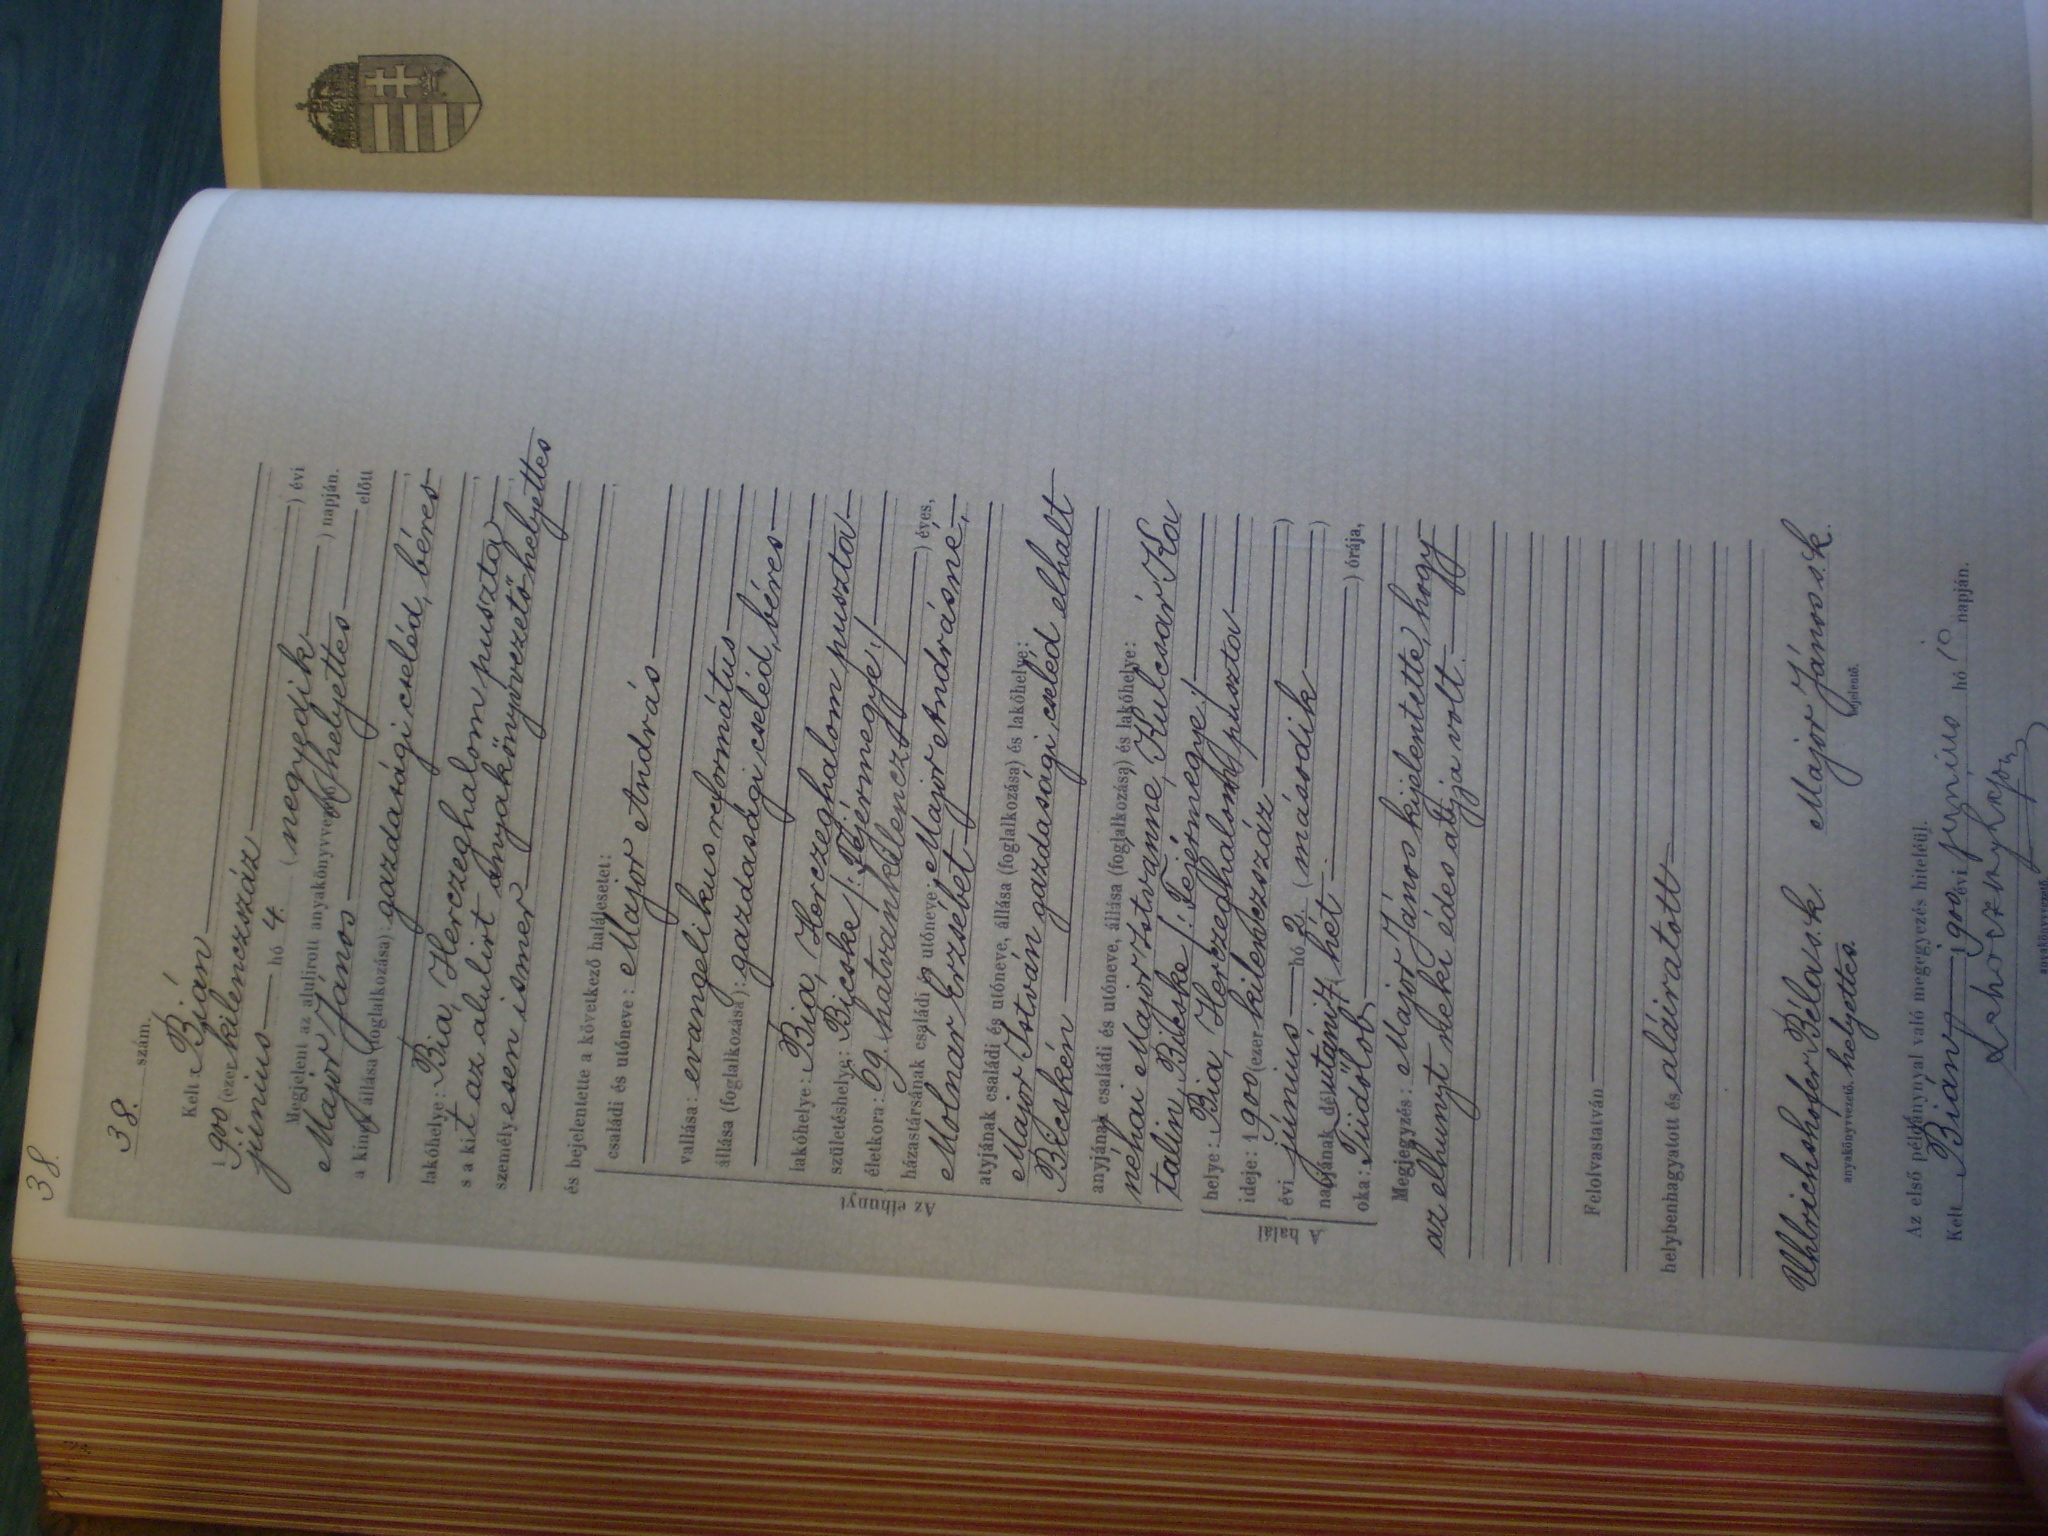 38.
38. szám.
Kelt: Bián
1900 (ezer kilenczszáz
június hó 4. (negyedik ) évi
) napján.
Megjelent az alulirott anyakönyvvezető helyettes előtt
Major János
a kinek állása (foglalkozása): gazdasági cseléd, béres
lakóhelye: Bia, Herczeghalom puszta,
s a kit az alulirt anyakönyvvezető helyettes
személyesen ismer
és bejelentette a következő halálesetet:
Az elhunyt
családi és utóneve: Major András
vallása: evangelikus református
állása (foglalkozása): gazdasági cseléd, béres
lakóhelye: Bia, Herczeghalom puszta
születéshelye: Bicske /: Fejérmegye :/
életkora: 69. hatvankilencz ) éves,
házastársának családi és utóneve: Major Andrásné,
Molnar Erzsébet
atyjának családi és utóneve, állása (foglalkozása) és lakóhelye:
Major István gazdasági cseléd elhalt
Bicskén
anyjának családi és utóneve, állása (foglalkozása) és lakóhelye:
néhai Major Istvanné, Kulcsár Ka
talin, Bicske /: Fejérmegye :/
A halál
helye: Bia, Herczeghalom puszta
ideje: 1900 (ezer kilenczszáz )
évi június hó 2. (második )
napjának délutáni 7 (hét ) órája,
oka: Tüdőlob
Megjegyzés: Major János kijelentette, hogy
az elhunyt neki édes atyja volt.
Felolvastatván
helybenhagyatott és aláiratott
Uhlrichshofer Béla s. k. Major János s. k.
anyakönyvvezető. helyettes. bejelentő.
Az első példánnyal való megegyezés hiteléül.
Kelt Bián 1900 évi június hó 10 napján.
anyakönyvvezető